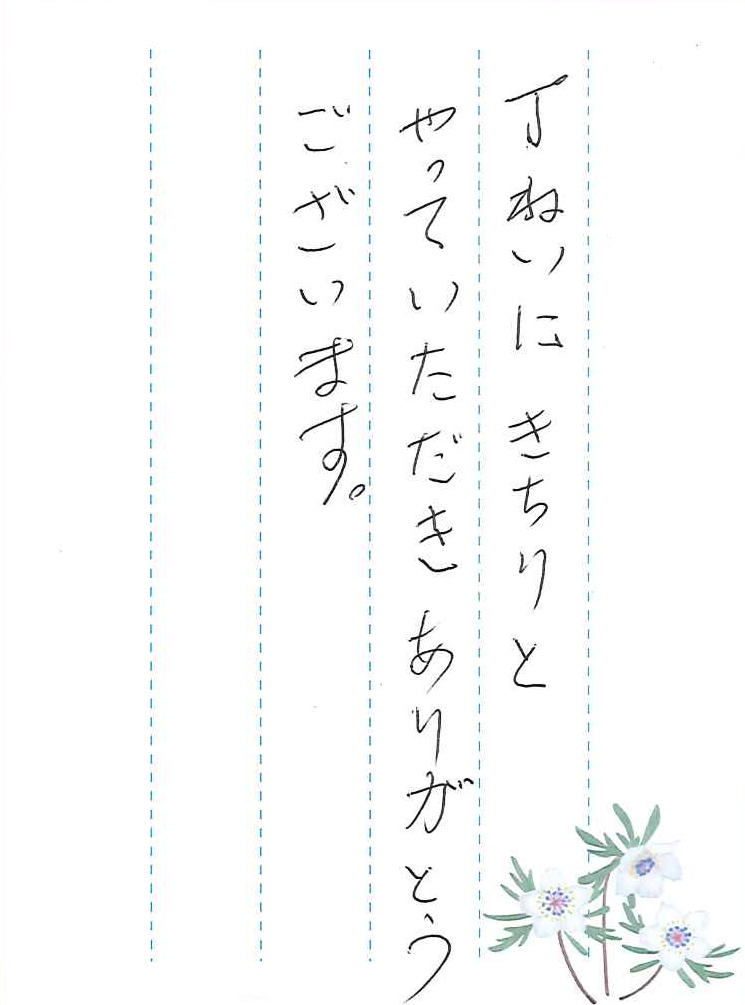 丁ねいに きちりと
やっていただき ありがとう
ございます。